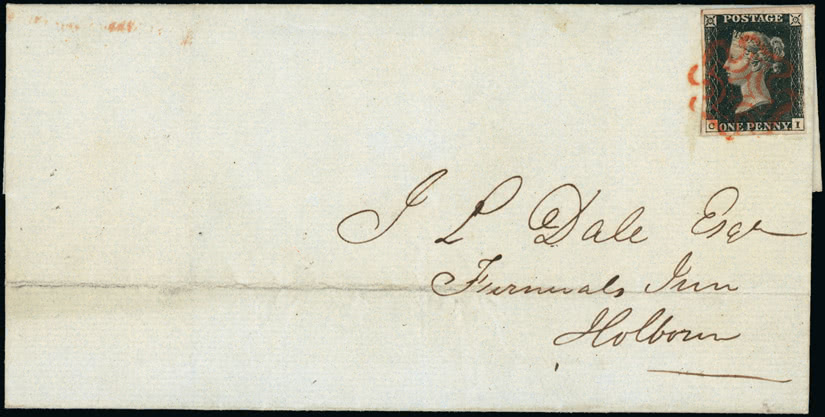 POSTAGE
ONE PENNY
C I
J L Dale Esqr
Furnivals Inn
Holborn